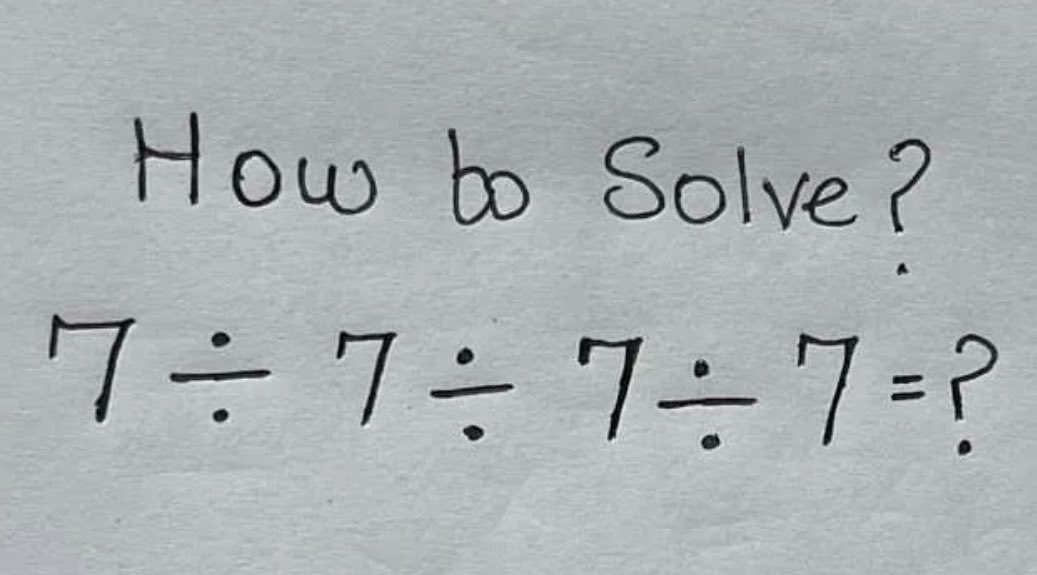 How to Solve?
7 ÷ 7 ÷ 7 ÷ 7 = ?